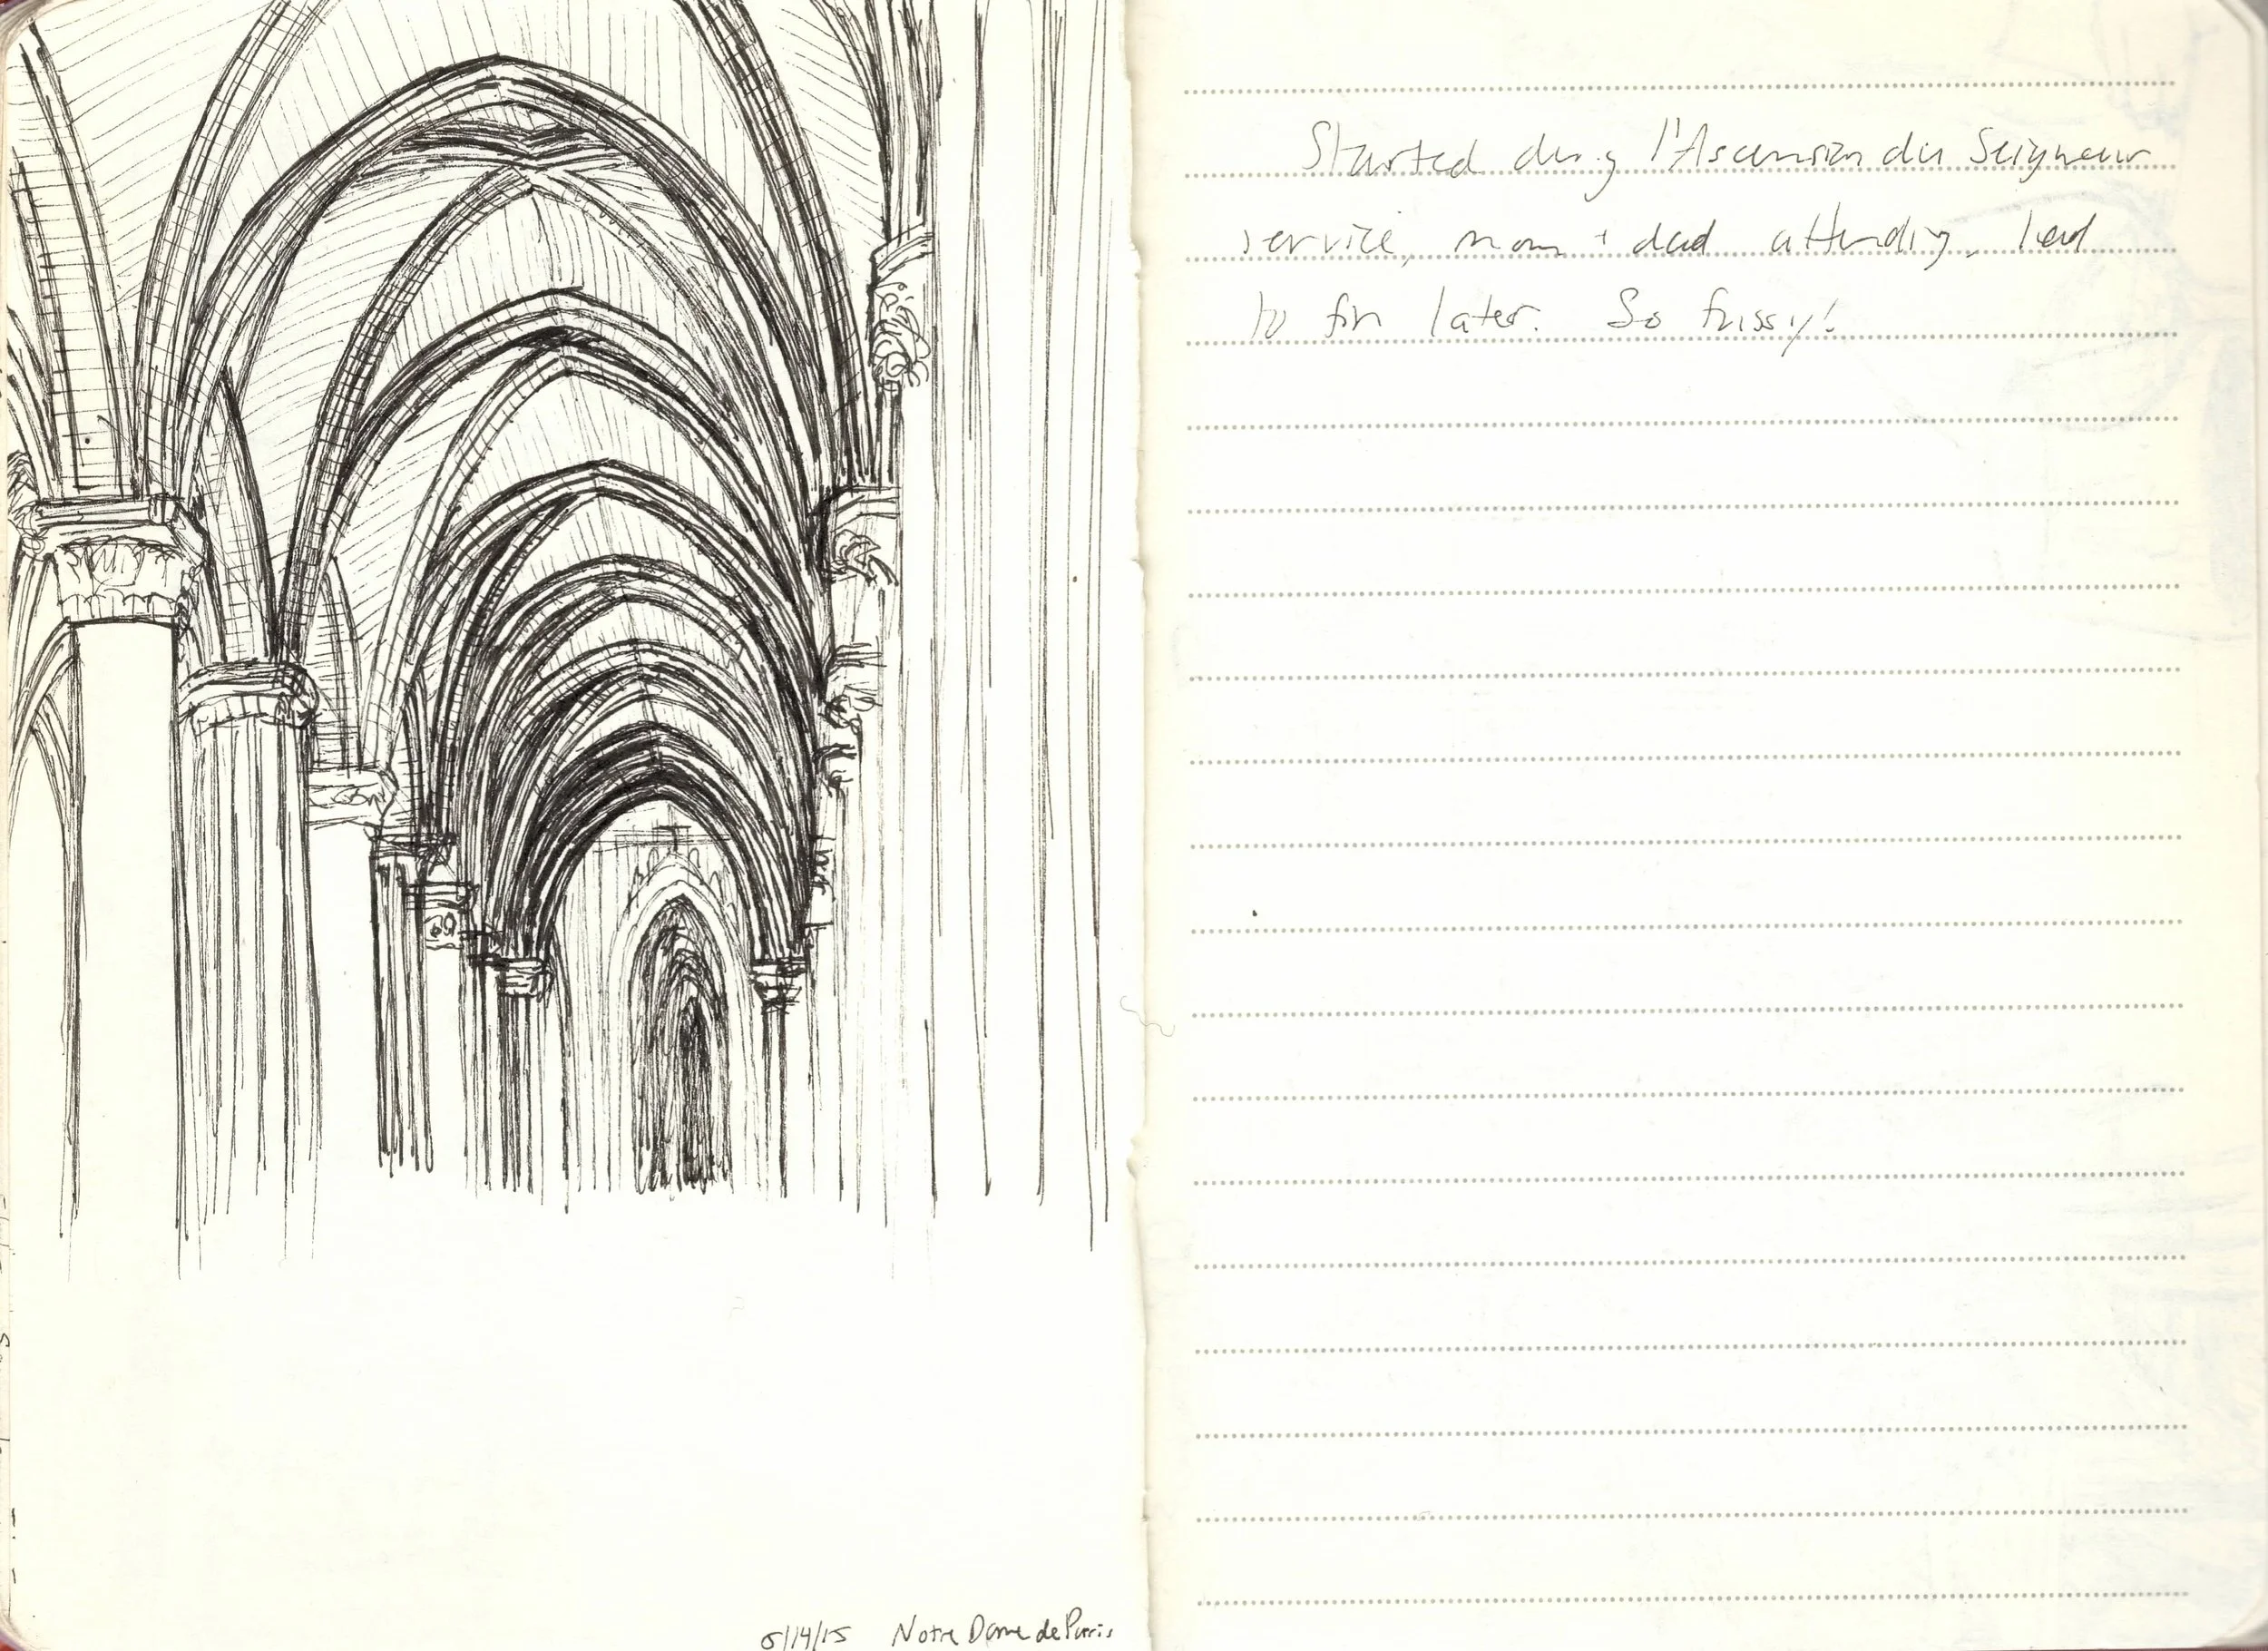 5/14/15 Notre Dame de Paris
Started durg l'Ascension du Seigneur
service, mom + dad attending, had
to fin later. So fussy!